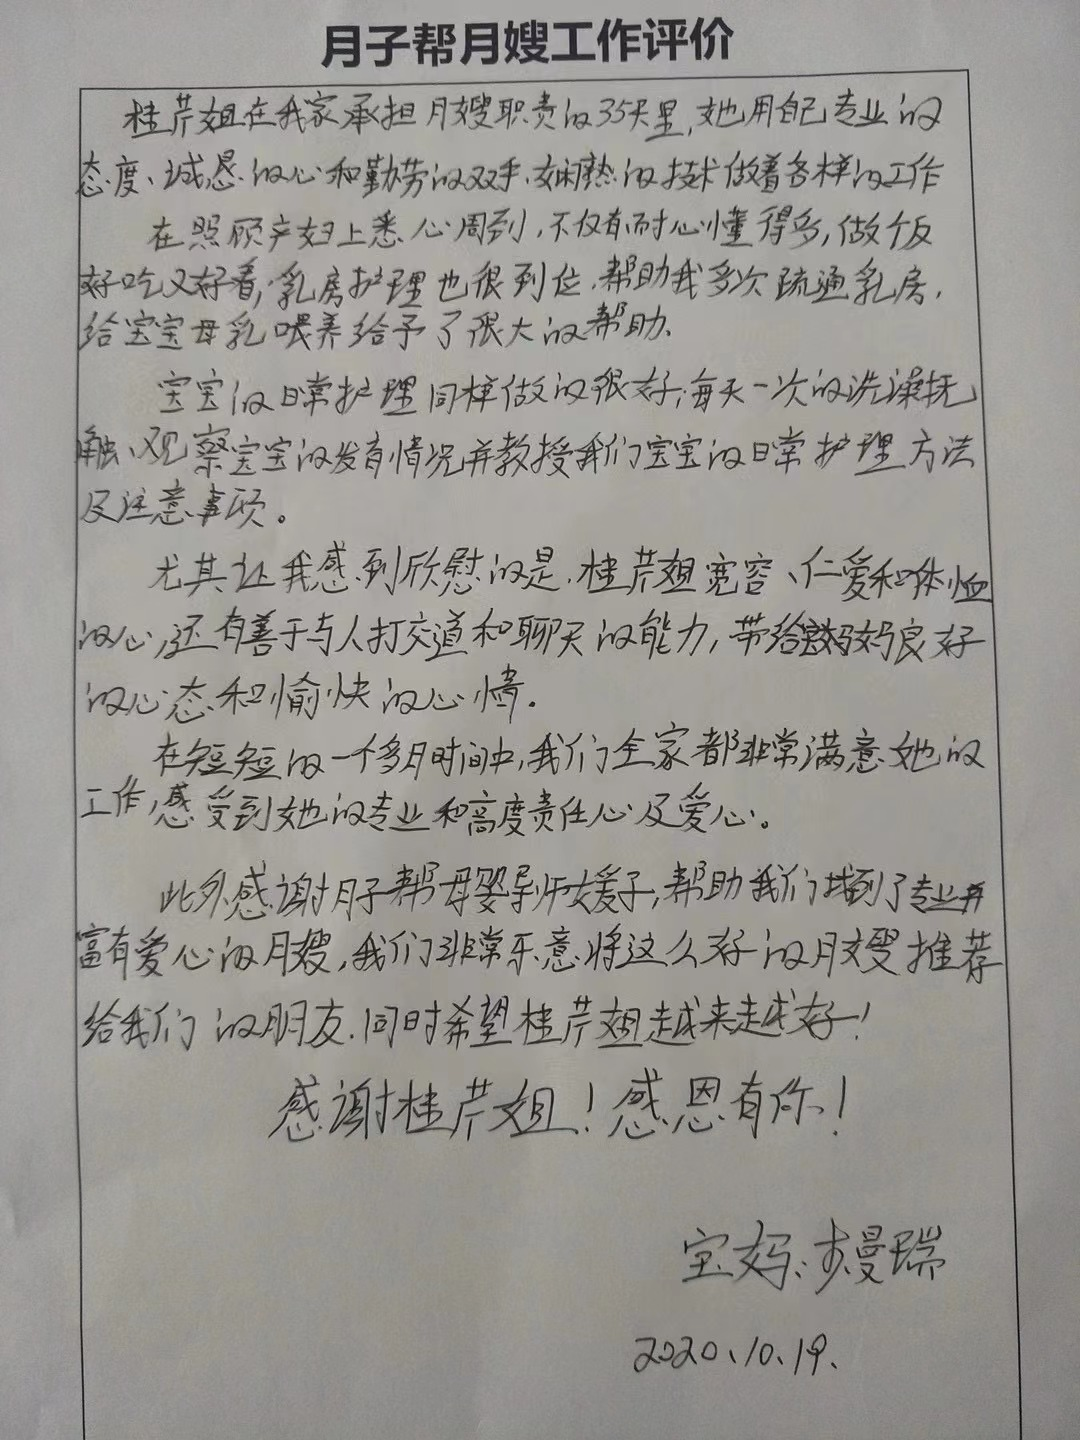 月子帮月嫂工作评价
桂芹姐在我家承担月嫂职责的35天里,她用自己专业的
态度、诚恳的心和勤劳的双手、娴熟的技术做着各样的工作
在照顾产妇上悉心周到,不仅有耐心懂得多,做饭
好吃又好看;乳房护理也很到位,帮助我多次疏通乳房,
给宝宝母乳喂养给予了很大的帮助.
宝宝的日常护理同样做的很好,每天一次的洗澡抚
触、观察宝宝的发育情况并教授我们宝宝的日常护理方法
及注意事项。
尤其让我感到欣慰的是,桂芹姐宽容、仁爱和体恤
的心,还有善于与人打交道和聊天的能力,带给妈妈良好
的心态和愉快的心情.
在短短的一个多月时间中,我们全家都非常满意她的
工作,感受到她的专业和高度责任心及爱心。
此外感谢月子帮母婴导师媛子,帮助我们找到了专业并
富有爱心的月嫂,我们非常乐意将这么好的月嫂推荐
给我们的朋友.同时希望桂芹姐越来越好!
感谢桂芹姐!感恩有你!
宝妈:曼瑞
2020.10.19.